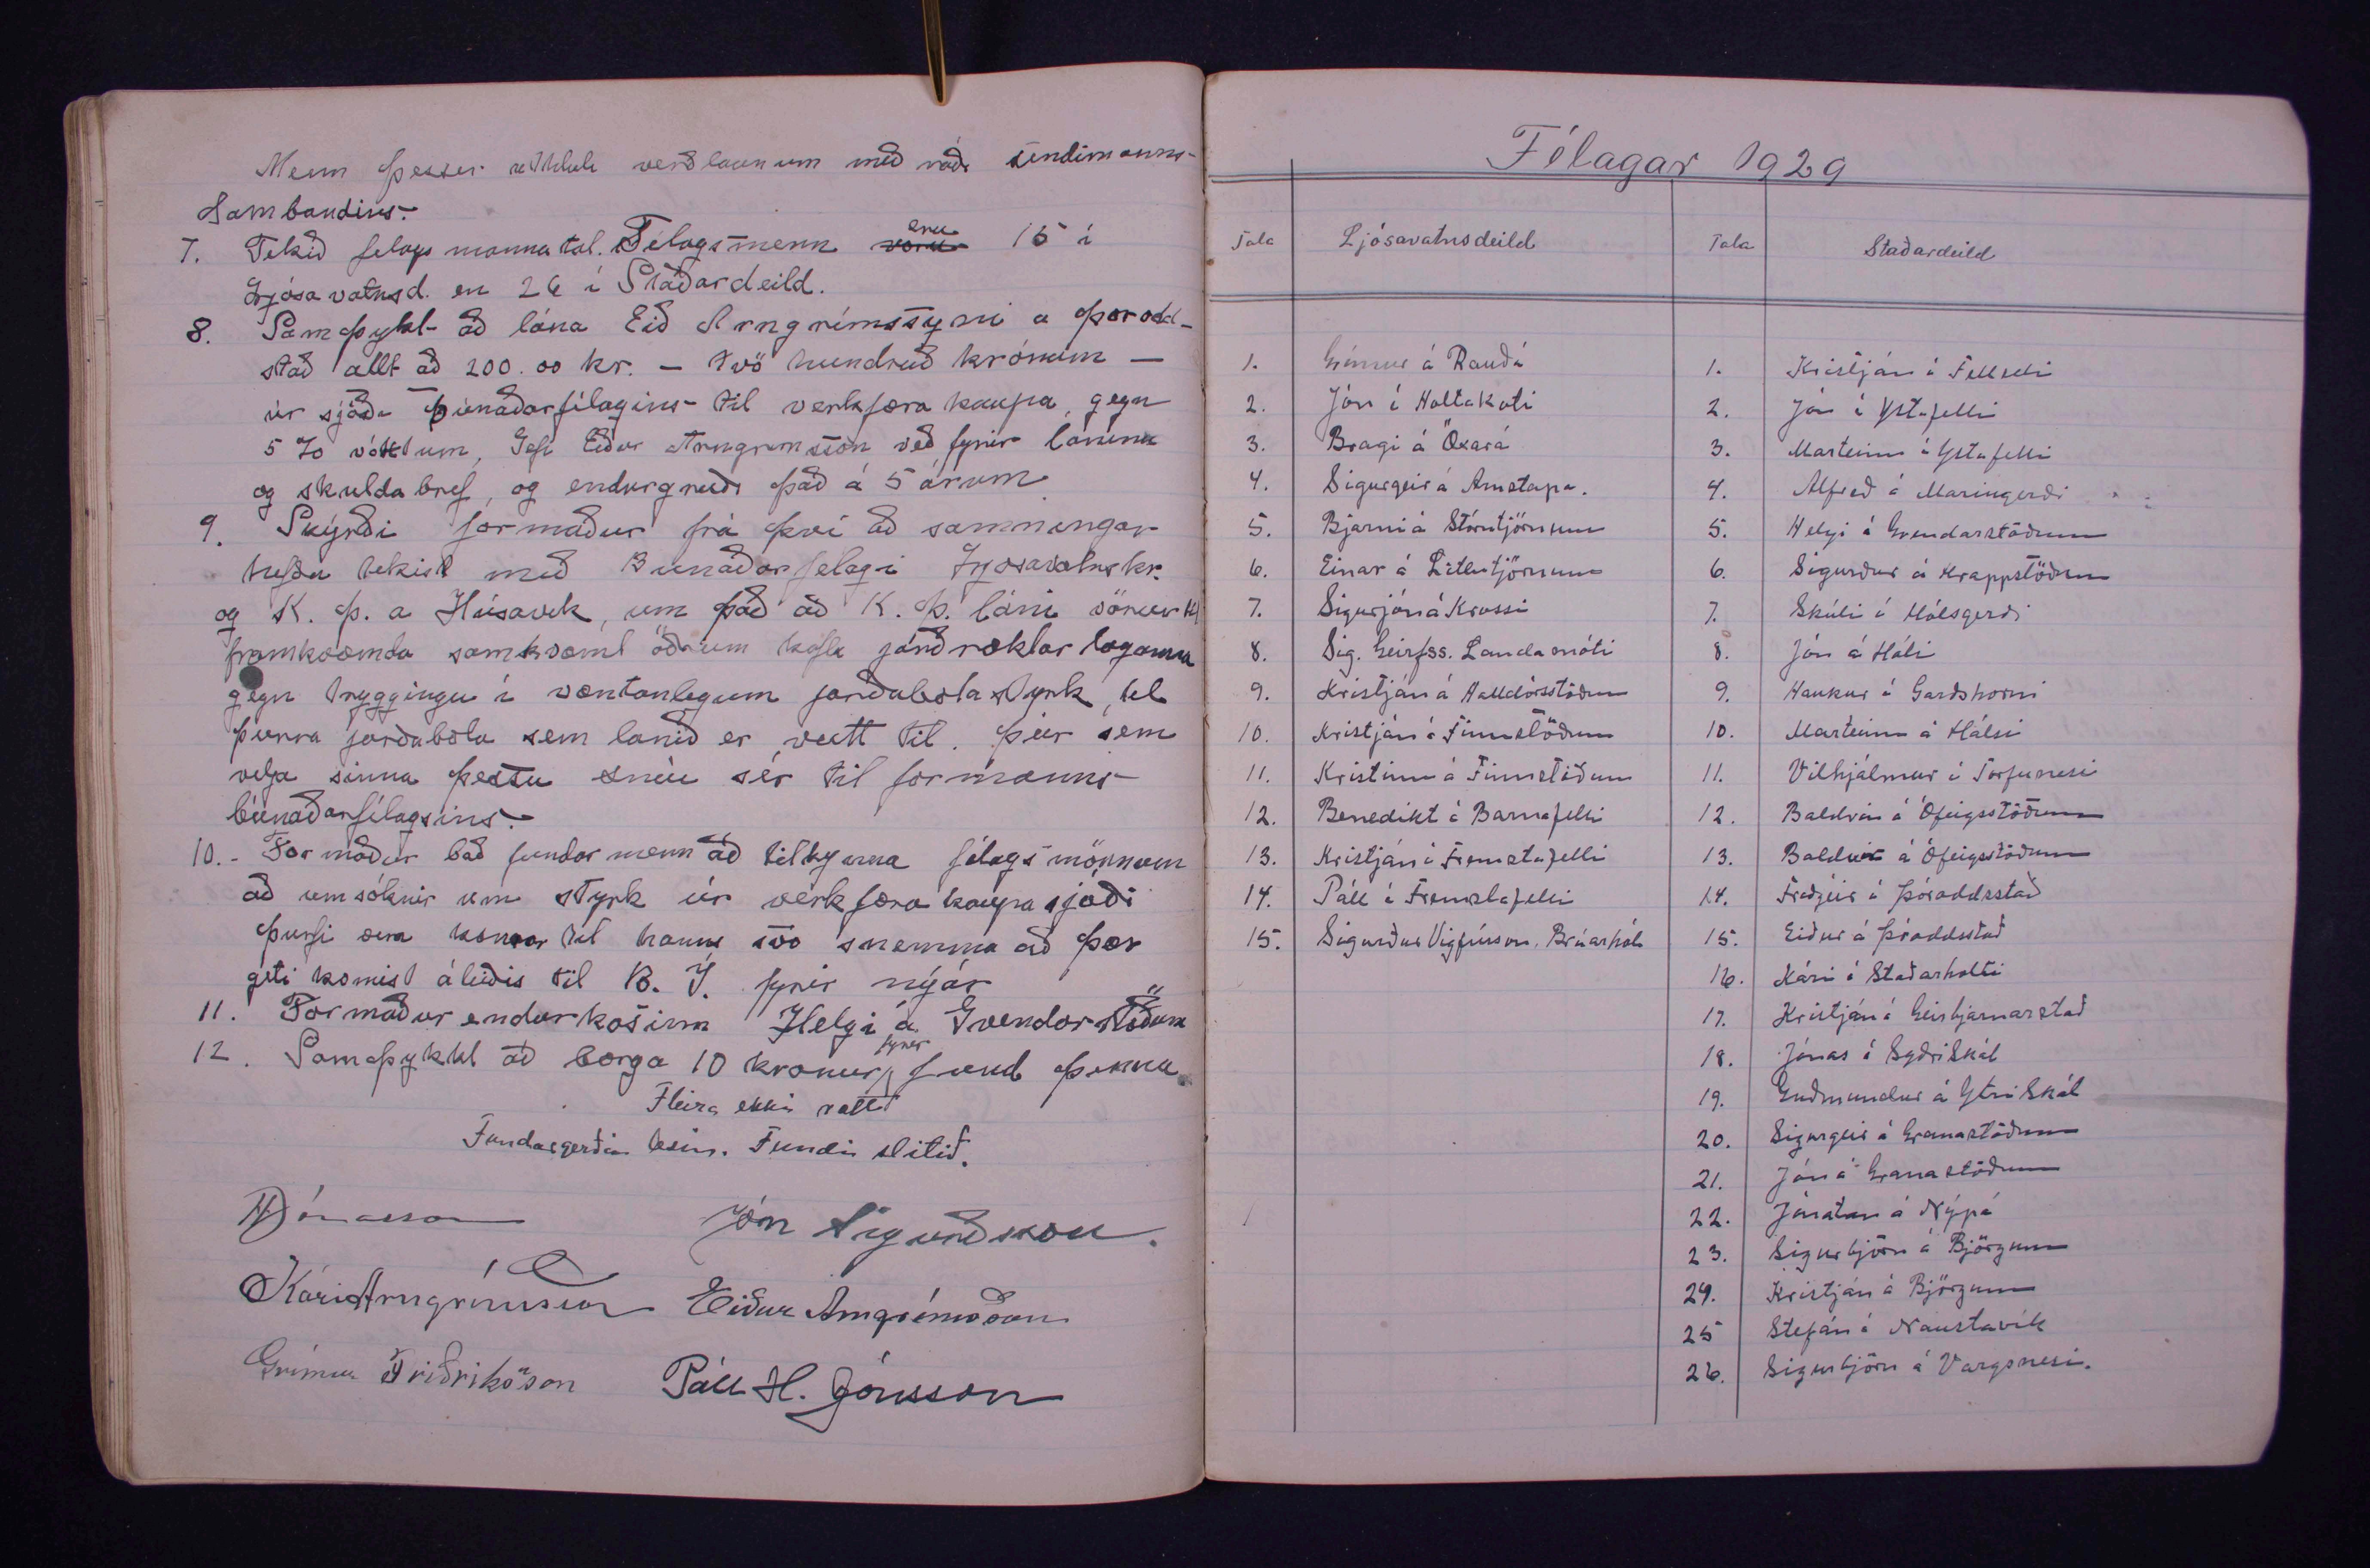 Menn þessir úthluti verðlaunum með ráði sendimanns
Sambandins.
7. Tekið felags manna tal. Félagsmenn voru eru 15 í
Ljósavatnsd. en 26 í Staðardeild.
8. Samþykt að lána Eið Arngrímssyni a Þorodd-
stað allt að 200.00 kr. – tvö hundruð krónum –
úr sjóði búnaðarfélagins til verkfæra kaupa, gegn
5 % vöxtum, Gefi Eiður Arngrímsson veð fyrir láninu
og skuldabref, og endurgreiði það á 5 árum
9. Skýrði formaður frá því að samningar
hefðu tekist með Bunaðarfelagi Ljosavatnshr.
og K. Þ. a Húsavik, um það að K. Þ. láni vörur til
framkvæmda samkvæmt öðrum kafla jarðræktar laganna
gegn tryggingu í væntanlegum jarðabota styrk, til
þeirra jarðabota sem lanið er veitt til. Þeir sem
vilja sinna þessu snúi sér til formanns
búnaðarfélagsins.
10. - Formaður bað fundarmenn að tilkynna félags mönnum
að umsóknir um styrk úr verkfæra kaupa sjóði
þurfi að vera komnar til hanns svo snemma að þær
geti komist áleiðis til B. Í. fyrir nýár
11. Formaður endurkosinn Helgi á Grendarstöðum
12. Samþykkt að borga 10 kronur fyrir fund þennan
Fleira ekki rætt
Fundargerðin lesin. Fundi slitið.
Jónasson Jón Sigurðsson.
Kári Arngrímsson Eiður Arngrímsson
Grímur Friðriksson Páll H. Jónsson
Félagar 1929
Tala Ljósavatnsdeild Tala Staðardeild
1. Grímur á Rauðá 1. Kristján í Fellseli
2. Jón í Holtakoti 2. Jón í Ystafelli
3. Bragi á Öxará 3. Marteinn í Ystafelli
4. Sigurgeir á Arnstapa. 4. Alfreð á Maringerði
5. Bjarni á Stórutjörnum 5. Helgi á Grendarstöðum
6. Einar á Litlutjörnum 6. Sigurður á Hrappstöðum
7. Sigurjón á Krossi 7. Skúli í Hólsgerði
8. Sig. Geirfss. Landamóti 8. Jón á Hóli
9. Kristján á Halldórsstöðum 9. Haukur í Garðshorni
10. Kristján á Finnstöðum 10. Marteinn á Hálsi
11. Kristinn á Finnstöðum 11. Vilhjálmur í Torfunesi
12. Benedikt á Barnafelli 12. Baldvin á Ófeigsstöðum
13. Kristján í Fremstafelli 13. Baldur á Ófeigsstöðum
14. Páll í Fremstafelli 14. Friðgeir á Þóroddsstað
15. Sigurður Vigfússon, Brúarhól 15. Eiður á Þóroddsstað
16. Kári á Staðarholti
17. Kristján á Geirbjarnarstað
18. Jónas á Syðri Skál
19. Guðmundur á Ytri Skál
20. Sigurgeir á Granastöðum
21. Jón á Granastöðum
22. Jónatan á Nýpá
23. Sigurbjörn á Björgum
24. Kristján á Björgum
25 Stefán í Naustavík
26. Sigurbjörn á Vargsnesi.